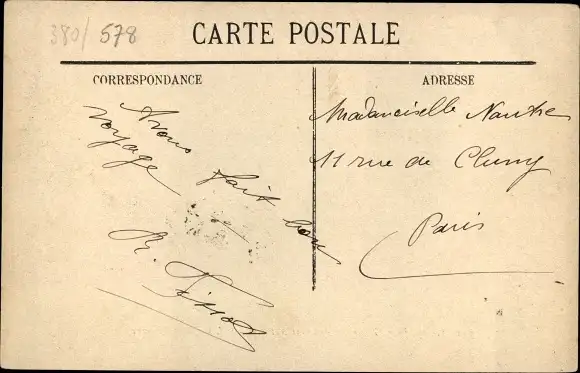 380/ 578
CARTE POSTALE
CORRESPONDANCE
Avons fait bon
voyage
ADRESSE
Mademoiselle
11 rue de Cluny
Paris